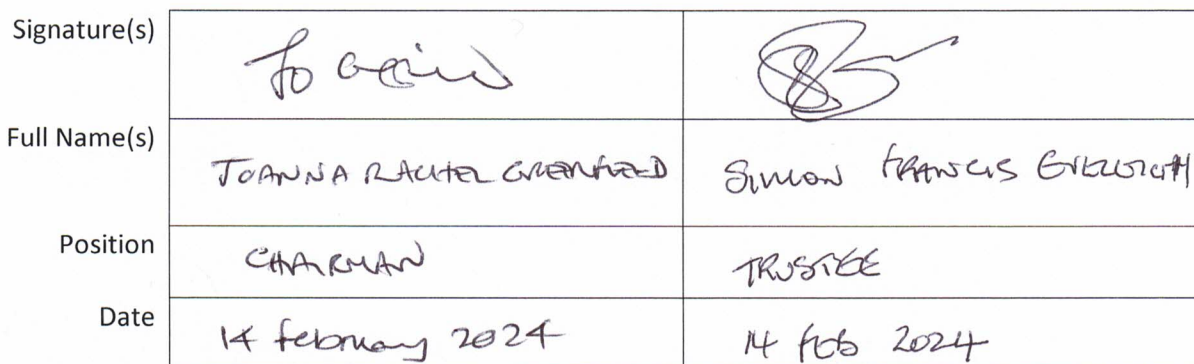 Signature(s)
Full Name(s) JOANNA RACHEL GREENFIELD SIMON FRANCIS
Position CHAIRMAN TRUSTEE
Date 14 february 2024 14 feb 2024